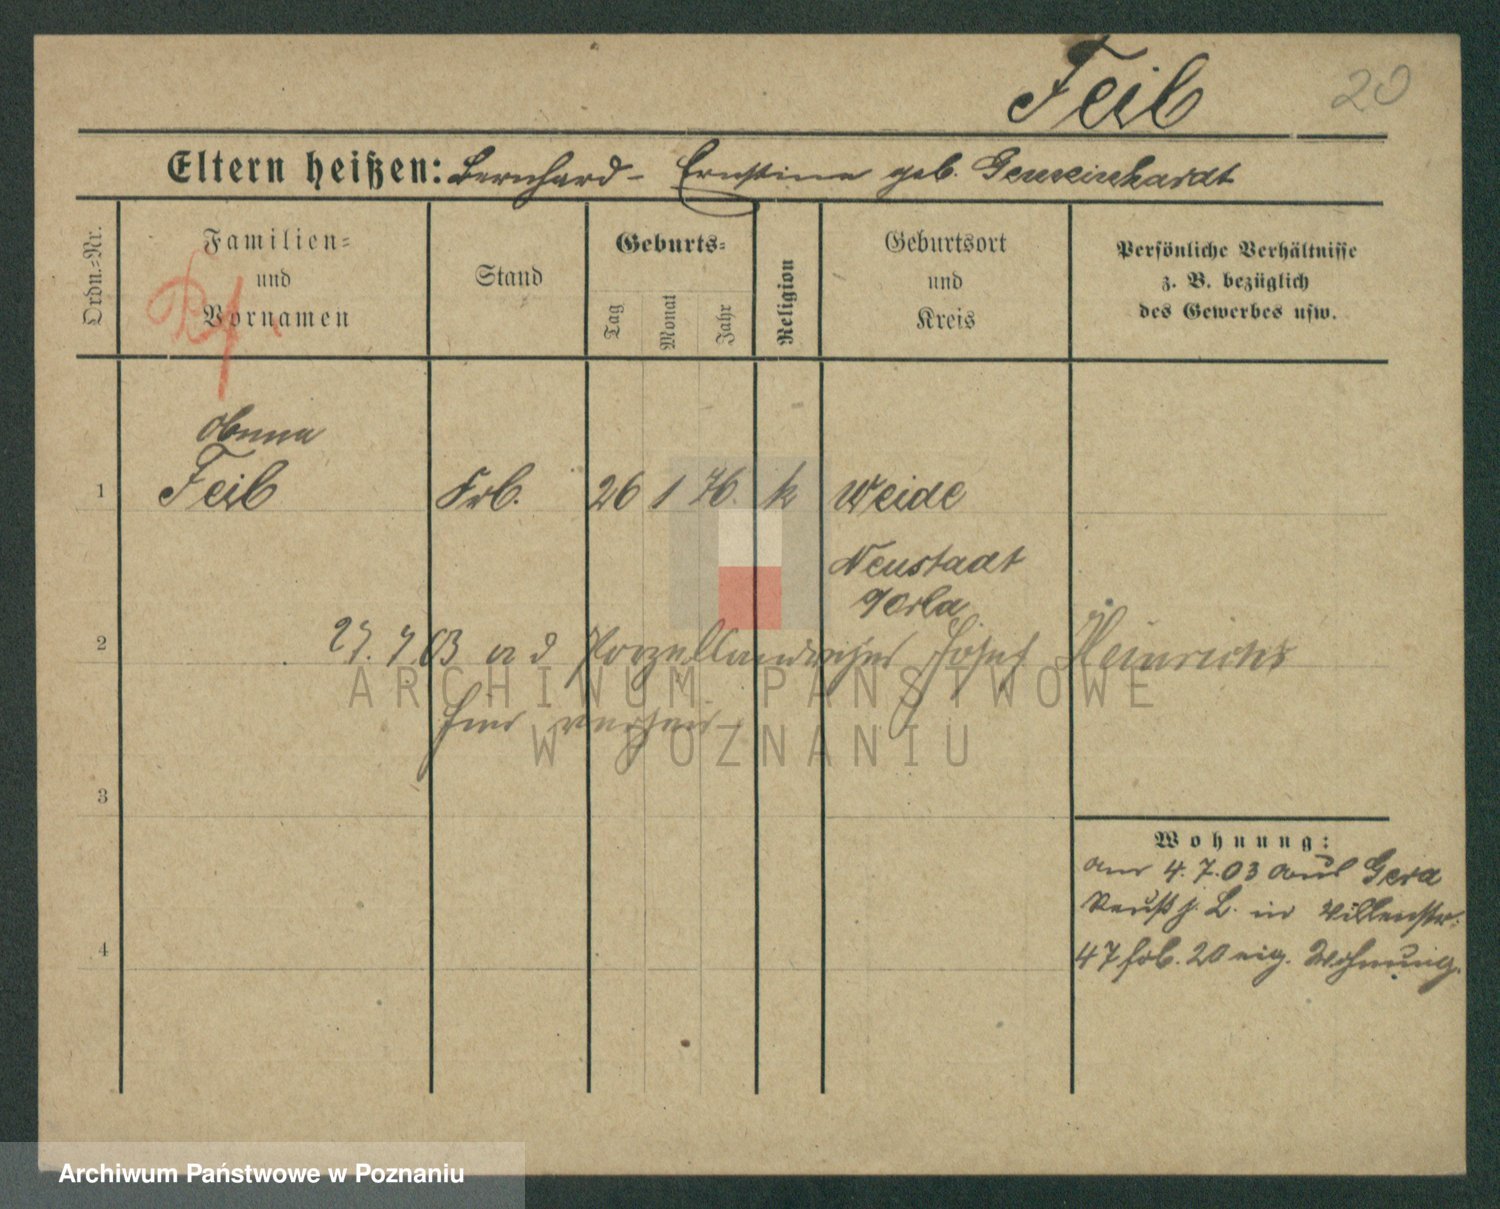 Feib 20
Eltern heißen: Bernhard - Ernstine geb.
Ordn.=Nr.
Familien=
und
Vornamen
Stand
Geburts=
Tag
Monat
Jahr
Religion
Geburtsort
und
Kreis
Persönliche Verhältnisse
z. B. bezüglich
des Gewerbes usw.
1 Feib Frl. 26 1 76. k Weide
Neustadt
a/Orla
2 27.7.03 a d Josef Heinrichs
hier
3
Wohnung:
am 4.7.03 aus Gera
Reuß j. L. in Villenstr.
4 47 frb. 20 eig. Wohnung.
ARCHIWUM PAŃSTWOWE
W POZNANIU
Archiwum Państwowe w Poznaniu